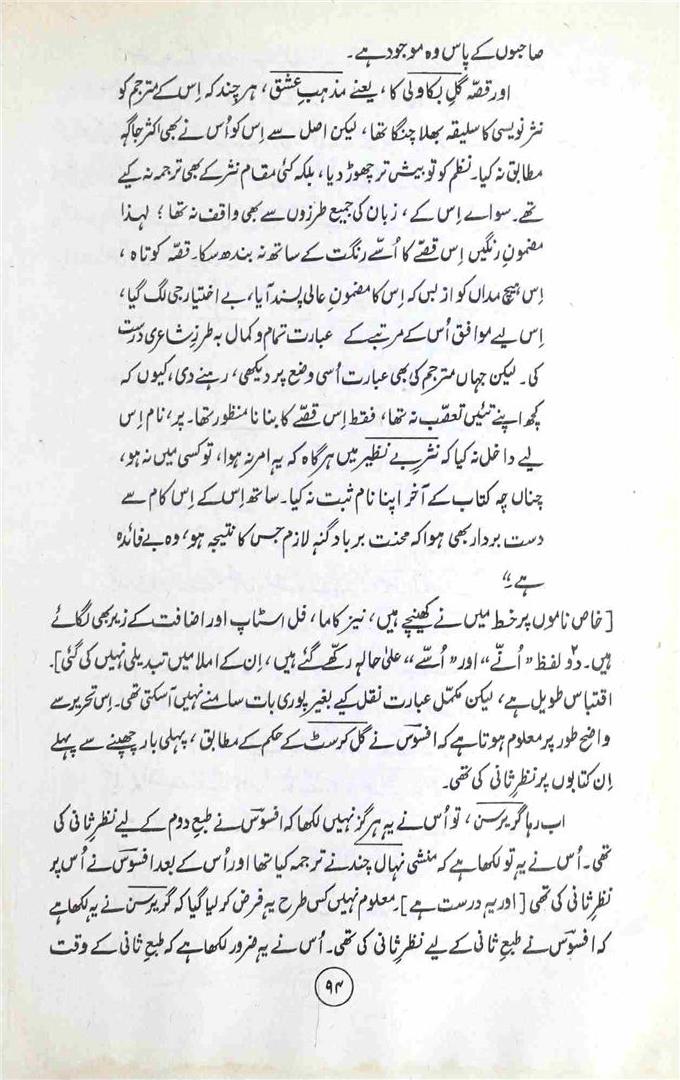 صاحبوں کے پاس وہ موجود ہے۔
اور قصّہ گلِ بکاولی کا، یعنے مذہبِ عشق، ہر چند کہ اِس کے مترجم کو
نثر نویسی کا سلیقہ بھلا چنگا تھا، لیکن اصل سے اِس کو اُس نے بھی اکثر جاگہ
مطابق نہ کیا۔ نظم کو تو بیش تر چھوڑ دیا، بلکہ کئی مقام نثر کے بھی ترجمہ نہ کیے
تھے۔ سواے اِس کے، زبان کی جمیع طرزوں سے بھی واقف نہ تھا؛ لہٰذا
مضمونِ رنگیں اِس قصّے کا اُسّے رنگت کے ساتھ نہ بندھ سکا۔ قصّہ کوتاہ،
اِس ہیچ مداں کو از بس کہ اِس کا مضمونِ عالی پسند آیا، بے اختیار جی لگ گیا،
اِس لیے موافق اُس کے مرتبے کے عبارت تمام و کمال بہ طرزِ شاعری درست
کی۔ لیکن جہاں مترجم کی بھی عبارت اُسی وضع پر دیکھی، رہنے دی، کیوں کہ
کچھ اپنے تئیں تعصّب نہ تھا، فقط اِس قصّے کا بنانا منظور تھا۔ پر، نام اِس
لیے داخل نہ کیا کہ نثرِ بے نظیر میں ہر گاہ کہ یہ امر نہ ہوا، تو کسی میں نہ ہو،
چناں چہ کتاب کے آخر اپنا نام ثبت نہ کیا۔ ساتھ اِس کے اِس کام سے
دست بردار بھی ہوا کہ محنت برباد گنہ لازم جس کا نتیجہ ہو، وہ بے فائدہ
ہے۔“
[خاص ناموں پر خط میں نے کھینچے ہیں، نیز کاما، فل اسٹاپ اور اضافت کے زیر بھی لگائے
ہیں۔ دو لفظ ”اُنّے“ اور ”اُسّے“ علیٰ حالہٖ رکھے گئے ہیں، اِن کے املا میں تبدیلی نہیں کی گئی]۔
اقتباس طویل ہے، لیکن مکمّل عبارت نقل کیے بغیر پوری بات سامنے نہیں آسکتی تھی۔ اِس تحریر سے
واضح طور پر معلوم ہوتا ہے کہ افسوؔس نے گل کرسٹ کے حکم کے مطابق، پہلی بار چھپنے سے پہلے
اِن کتابوں پر نظرِ ثانی کی تھی۔
اب رہا گریرسن، تو اُس نے یہ ہرگز نہیں لکھا کہ افسوؔس نے طبعِ دوم کے لیے نظرِ ثانی کی
تھی۔ اُس نے یہ تو لکھا ہے کہ منشی نہال چند نے ترجمہ کیا تھا اور اُس کے بعد افسوؔس نے اُس پر
نظرِ ثانی کی تھی [اور یہ درست ہے]۔ معلوم نہیں کس طرح یہ فرض کر لیا گیا کہ گریرسن نے یہ لکھا ہے
کہ افسوؔس نے طبعِ ثانی کے لیے نظرِ ثانی کی تھی۔ اُس نے یہ ضرور لکھا ہے کہ طبعِ ثانی کے وقت
۹۴